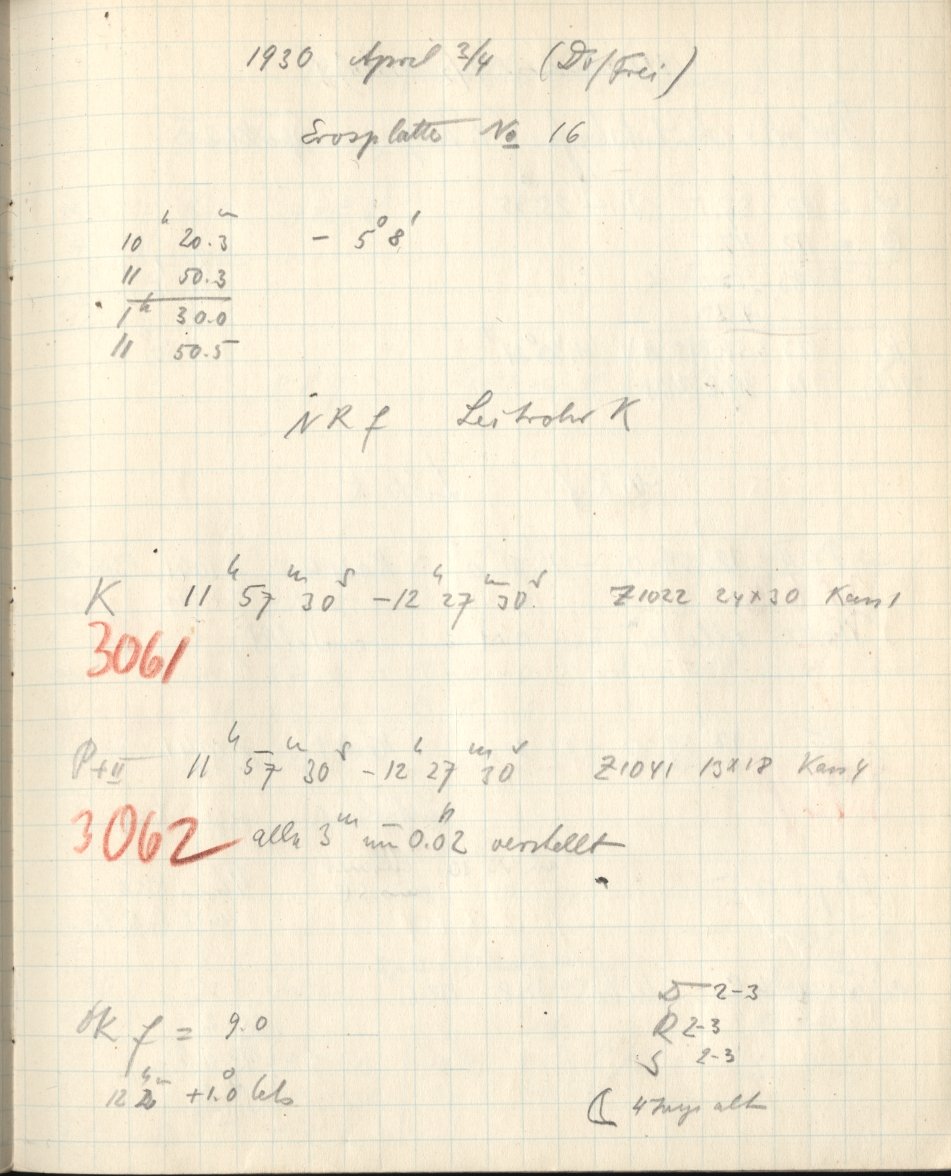 1930 April 3/4 (Do/Frei)
Erosplatte No 16
10 h 20.3 m − 5° 8'
11 50.3
1 h 30.0
11 50.5
NR f Leitrohr K
K 11 h 57 m 30 s − 12 h 27 m 30 s Z1022 24x30 Kass 1
3061
P+II 11 h 57 m 30 s − 12 h 27 m 30 s Z1041 13x18 Kass 4
3062 alle 3 m um 0.02 verstellt
f = 9.0
D 2-3
R 2-3
S 2-3
12 h 20 m +1.0°
4 Tage alt